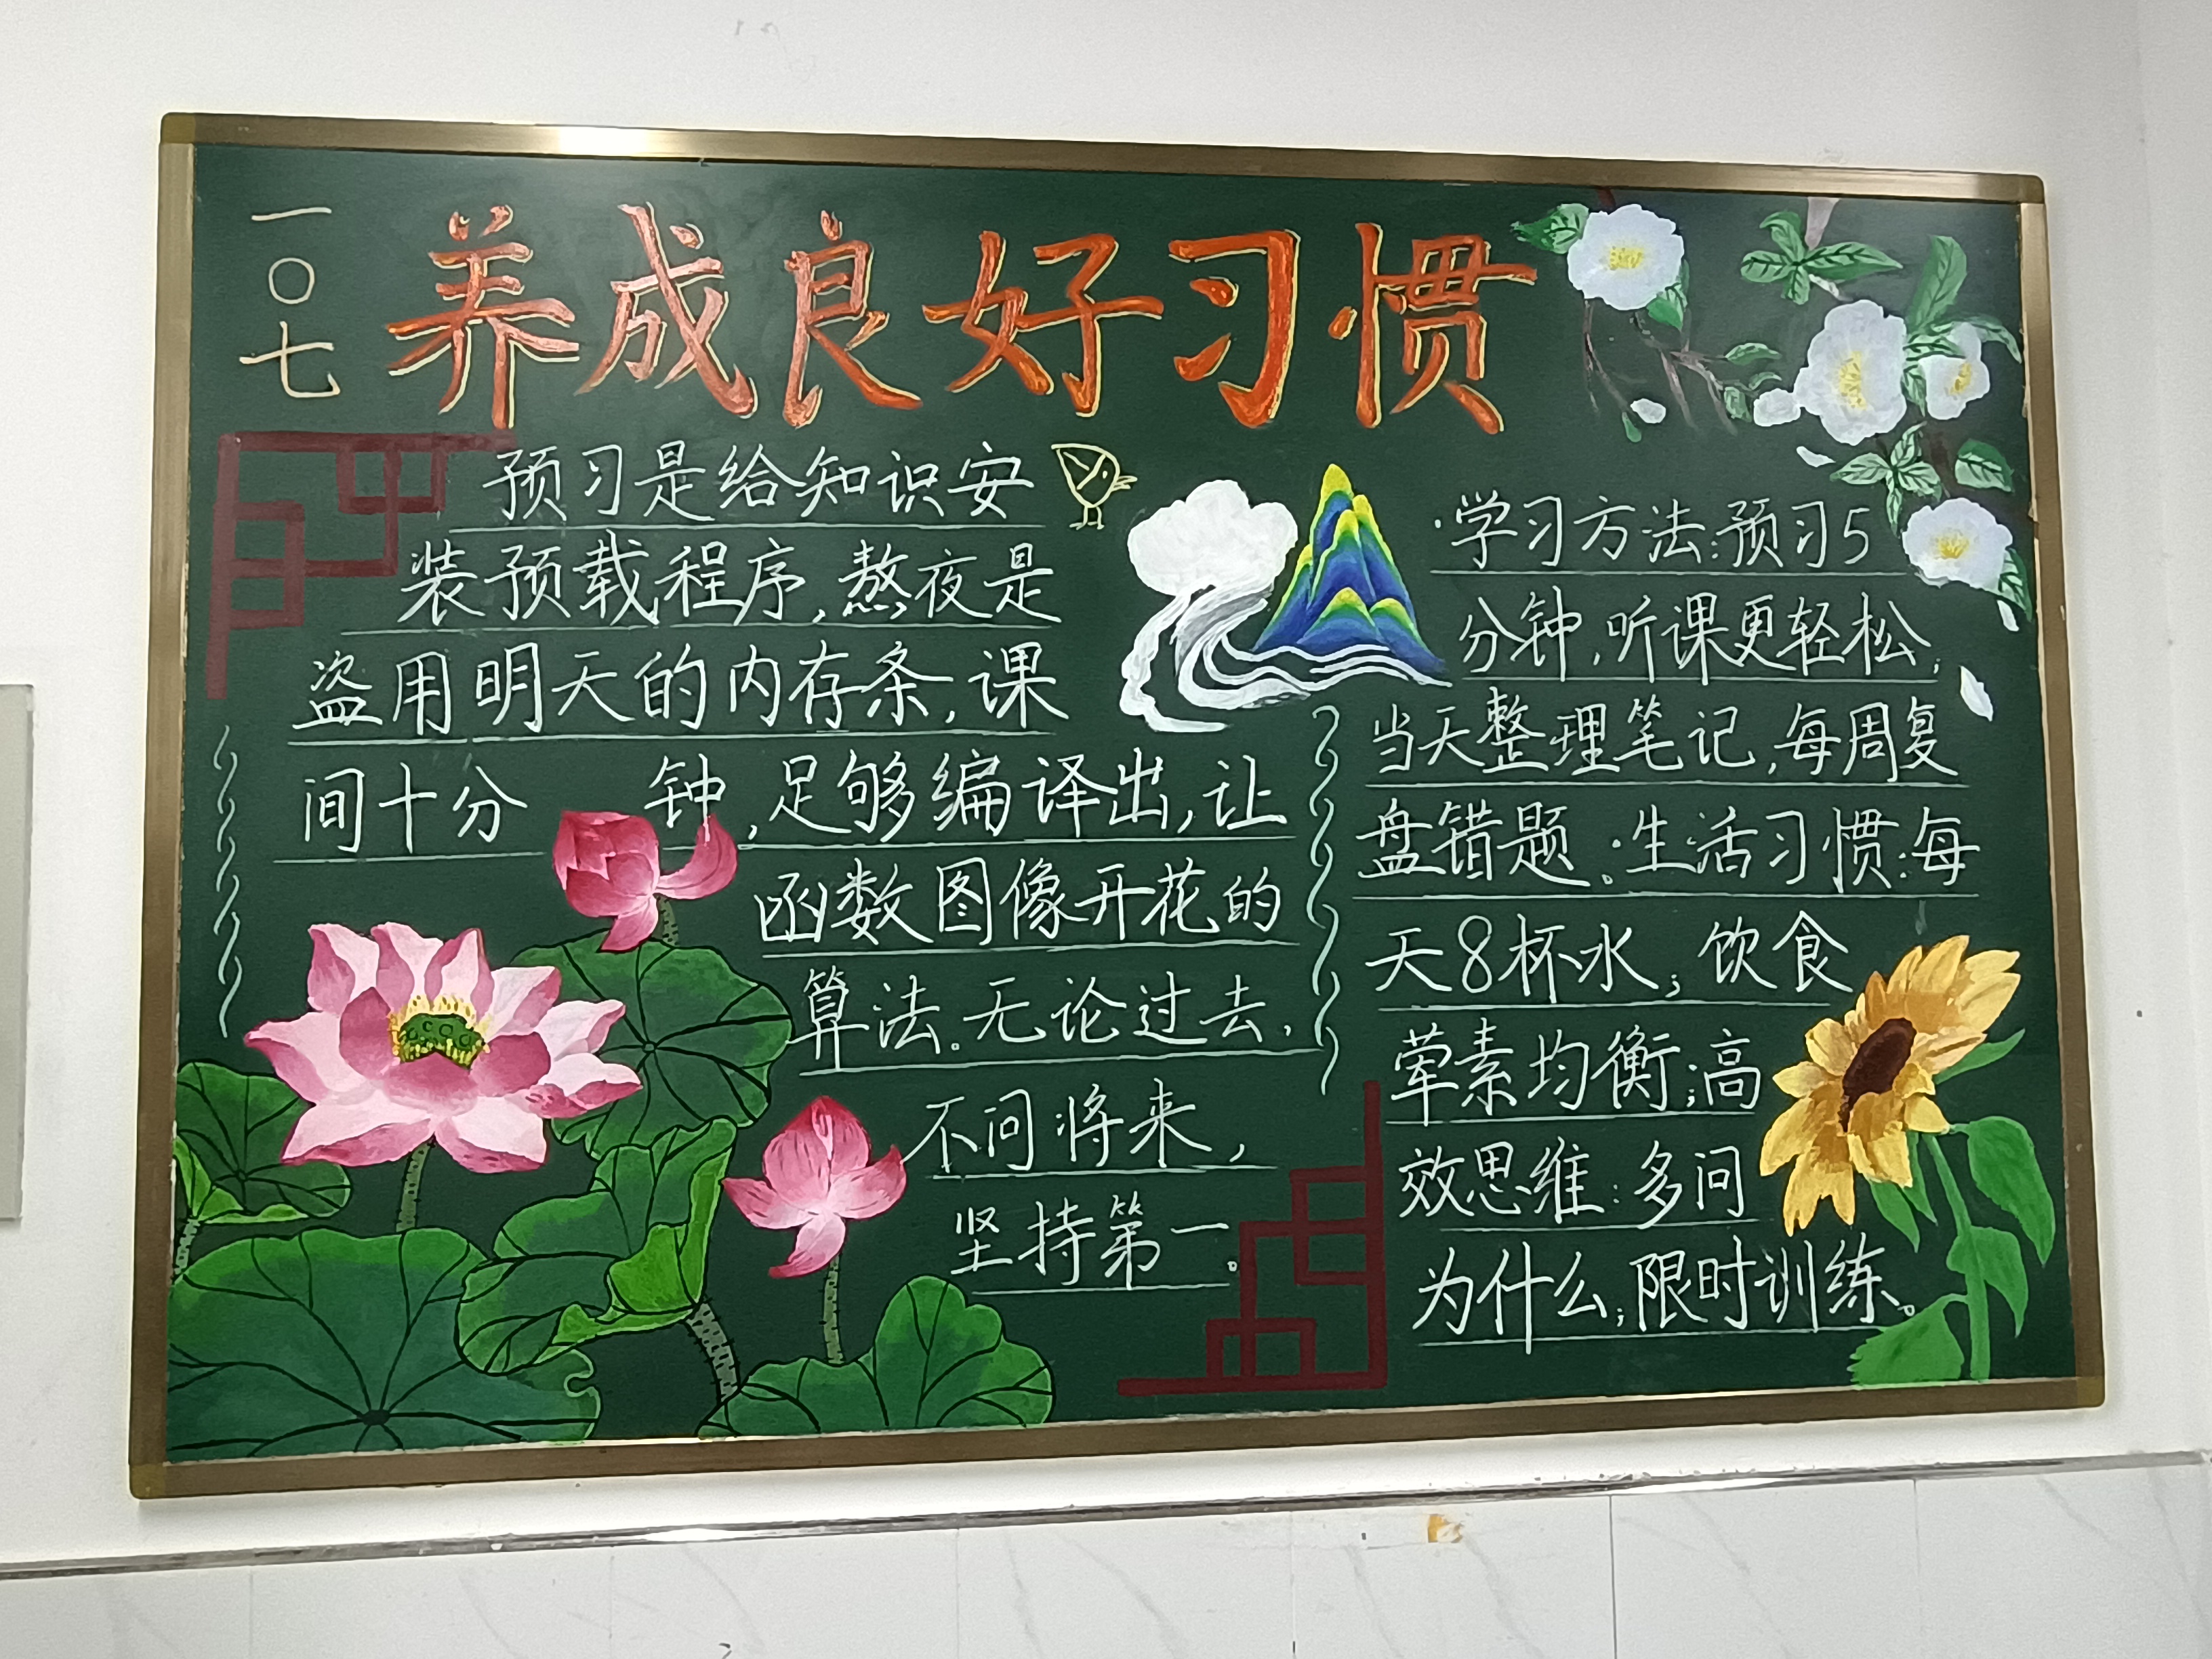 一〇七
养成良好习惯
预习是给知识安
装预载程序,熬夜是
盗用明天的内存条,课
间十分钟,足够编译出,让
函数图像开花的
算法。无论过去,
不问将来,
坚持第一。
·学习方法:预习5
分钟,听课更轻松;
当天整理笔记,每周复
盘错题。·生活习惯:每
天8杯水;饮食
荤素均衡;高
效思维:多问
为什么;限时训练。